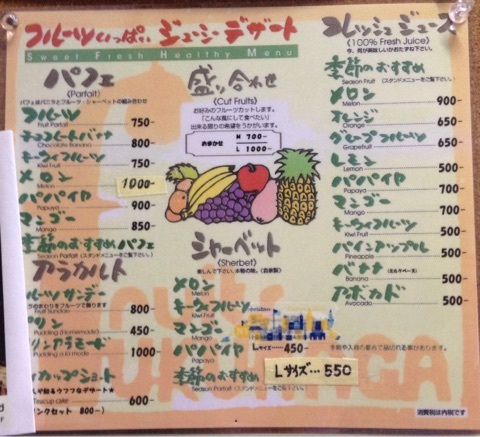 フルーツいっぱい ジューシーデザート
Sweet Fresh Healthy Menu
パフェ
(Parfait)
パフェはバニラとフルーツ・シャーベットの組み合わせ
フルーツ 750-
Fruit Parfait
チョコレートバナナ 800
Chocolate Banana
キーウィフルーツ 750-
Kiwi Fruit
メロン 1000-
Melon
パパイヤ 900
Papaya
マンゴー 850
Mango
季節のおすすめパフェ
Season Parfait (スタンドメニューをご覧下さい。)
アラカルト
ルーツサンデー 800
Fruit Sundae
プリン 450
Pudding (homemade)
リンアラモード 1000
Pudding a la mode
ィカップショート 600-
Teacup cake
ンクセット 800-)
盛り合わせ
(Cut Fruits)
お好みのフルーツカットします。
「こんな風にして食べたい」
出来る限りの希望をうかがいます。
おまかせ M 700-
L 1000-
シャーベット
(Sherbet)
楽しんで下さい。本物の味。(自家製)
メロン
Melon
キーウィフルーツ
Kiwi Fruit
マンゴー
Mango
パパイヤ
Papaya
季節のおすすめ
Season Parfait (スタンドメニューをご覧下さい。)
Lサイズ… 450
Lサイズ… 550
フレッシュジュース
(100% Fresh Juice)
季節のおすすめ
Season Fruit (スタンドメニューをご覧下さい。)
メロン 900-
Melon
オレンジ 650
Orange
グレープフルーツ 650
Grape Fruit
レモン 500
Lemon
パパイヤ 700
Papaya
マンゴー 700
Mango
キーウィフルーツ 500
Kiwi Fruit
パインアップル 500
Pineapple
バナナ 500
Banana
アボカド 500
Avocado
消費税は内税です